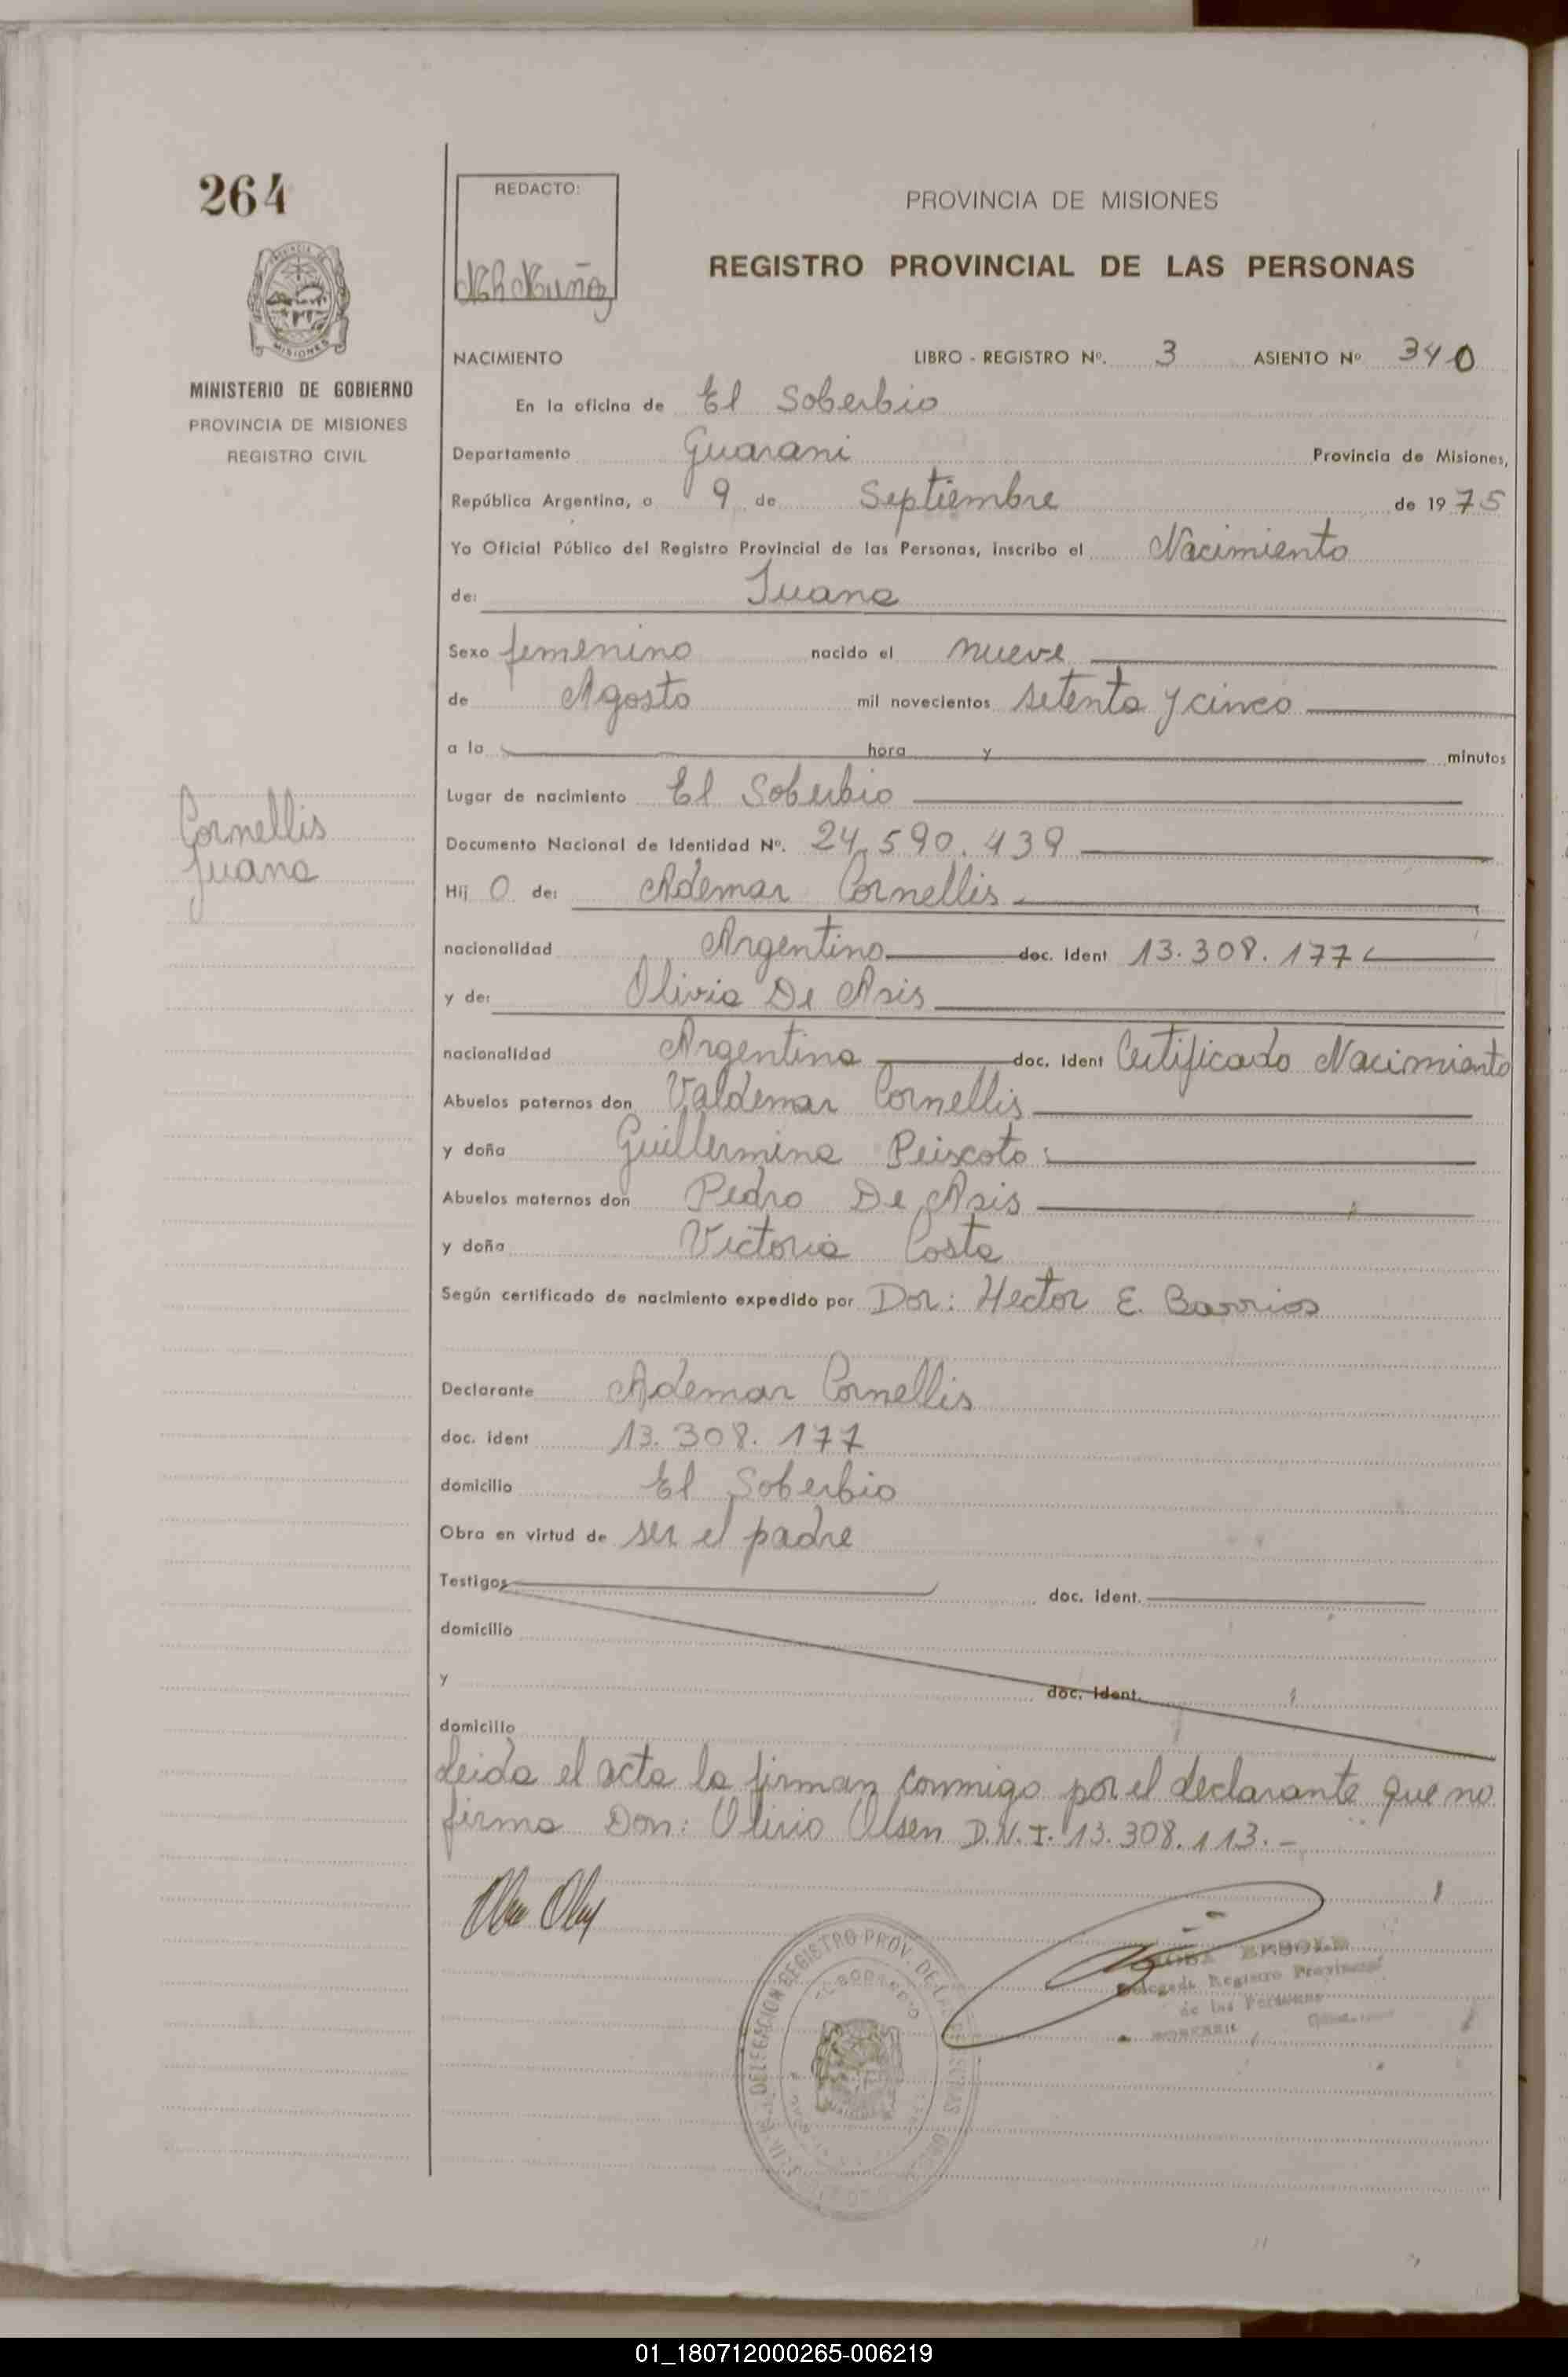 264
REDACTO:
PROVINCIA DE MISIONES
REGISTRO PROVINCIAL DE LAS PERSONAS
MINISTERIO DE GOBIERNO
PROVINCIA DE MISIONES
REGISTRO CIVIL
NACIMIENTO LIBRO - REGISTRO Nº. 3 ASIENTO Nº 340
En la oficina de El Soberbio
Departamento Guarani Provincia de Misiones,
República Argentina, a 9 de Septiembre de 1975
Yo Oficial Público del Registro Provincial de las Personas, inscribo el Nacimiento
de: Juana
Sexo femenino nacido el nueve
de Agosto mil novecientos setenta y cinco
a la hora y minutos
Lugar de nacimiento El Soberbio
Cornellis
Juana
Documento Nacional de Identidad Nº. 24.590.439
Hij O de: Ademar Cornellis
nacionalidad Argentino doc. Ident 13.308.177
y de: Olivia De Asis
nacionalidad Argentina doc. Ident Certificado Nacimiento
Abuelos paternos don Valdemar Cornellis
y doña Guillermina Peiscoto
Abuelos maternos don Pedro De Asis
y doña Victoria Costa
Según certificado de nacimiento expedido por Dor: Hector E. Barrios
Declarante Ademar Cornellis
doc. ident 13.308.177
domicilio El Soberbio
Obra en virtud de ser el padre
Testigos doc. ident.
domicilio
y doc. ident.
domicilio
Leida el acta la firman conmigo por el declarante que no
firma Don: Olirio Olsen D.N.I. 13.308.113.-
DELEGACION REGISTRO PROV. DE LAS PERSONAS
Delegada Registro Provincial
de las Personas
01_180712000265-006219